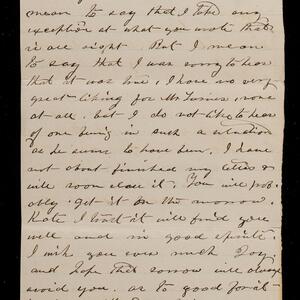 mean to say that I take any
exception at what you wrote that
is are right But I mean
to say that I was sorry to hear
that it was true, I have no very
great liking for Mr Turner, none
at all, but I do not like to hear
of one being in such a situation
as he seems to have been. I have
not about finished my letter &
will soon close it. You will prob-
ably get it on the morrow.
Kate I trust it will find you
well and in good spirits.
I wish you ever much Joy
and hope that sorrow will always
avoid you. as to good for it